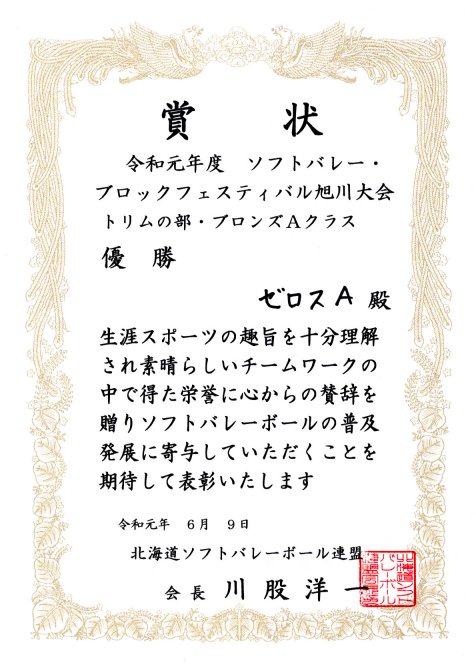 賞状
令和元年度 ソフトバレー・
ブロックフェスティバル旭川大会
トリムの部・ブロンズAクラス
優勝
ゼロスA 殿
生涯スポーツの趣旨を十分理解
され素晴らしいチームワークの
中で得た栄誉に心からの賛辞を
贈りソフトバレーボールの普及
発展に寄与していただくことを
期待して表彰いたします
令和元年 6月 9日
北海道ソフトバレーボール連盟
会長 川股洋一